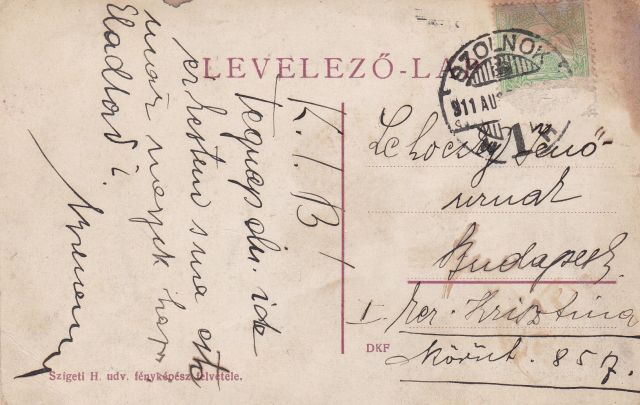 LEVELEZŐ-LA
SZOLNOK
911 AUG
K. I. B!
tegnap du. ide
érkeztem s ma este
már megyek haza
Eladtad i.
Lehoczky Jenő
urnak
Budapest.
I. Ker. Krisztina
Körút. 85
DKF
Szigeti H. udv. fényképész felvétele.